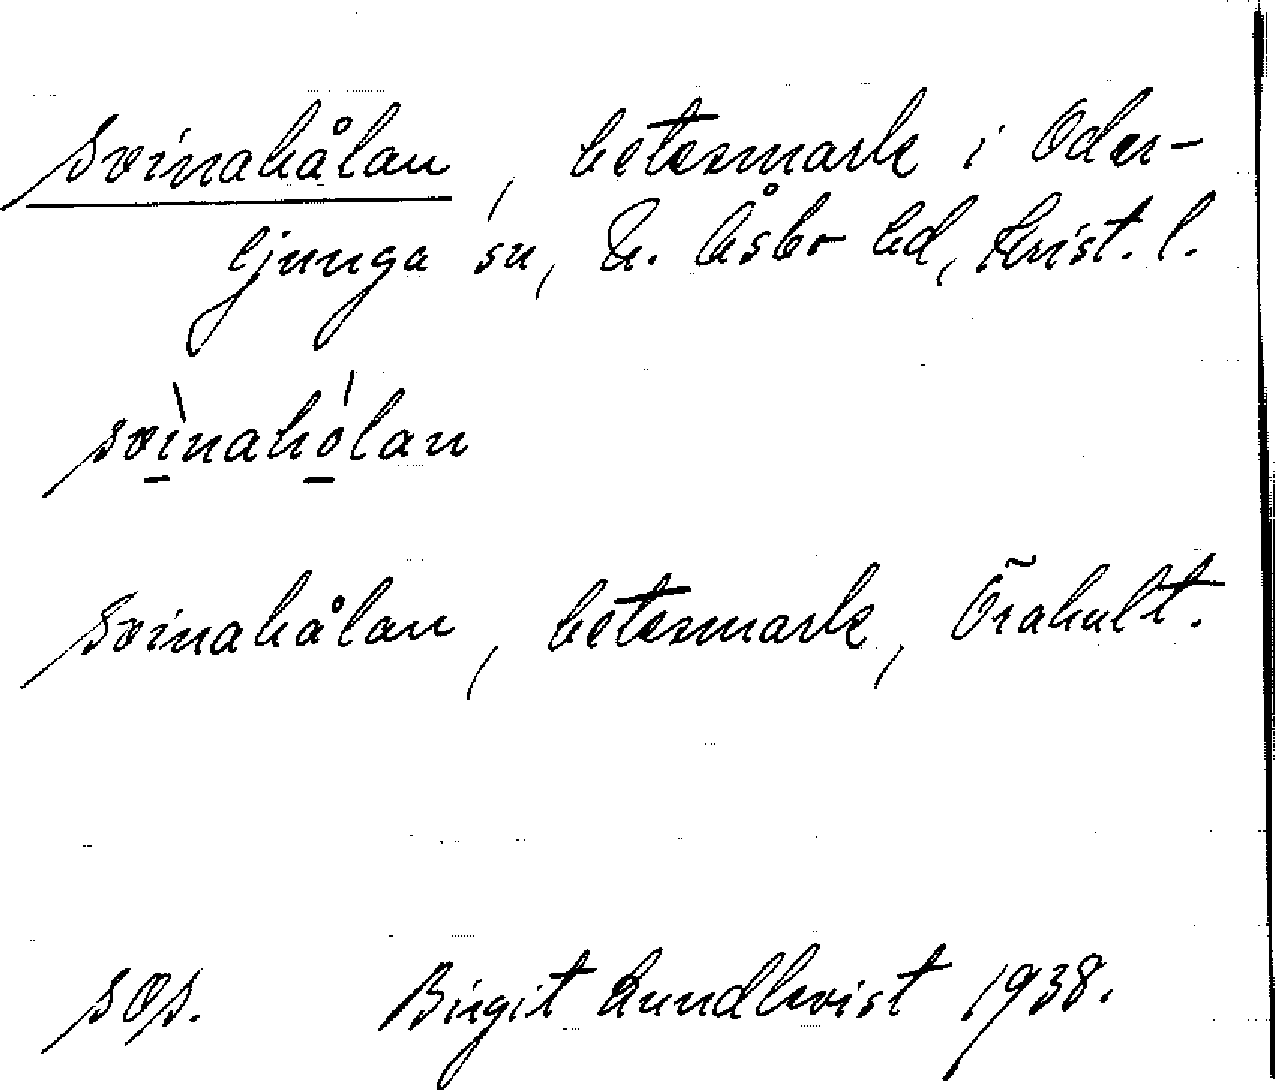 Svinahålan, betesmark i Oder-
ljunga sn, N. Åsbo hd, Krist. l.
svìnahólan
Svinahålan, betesmark, Örahult.
sOs. Birgit Lundkvist 1938.